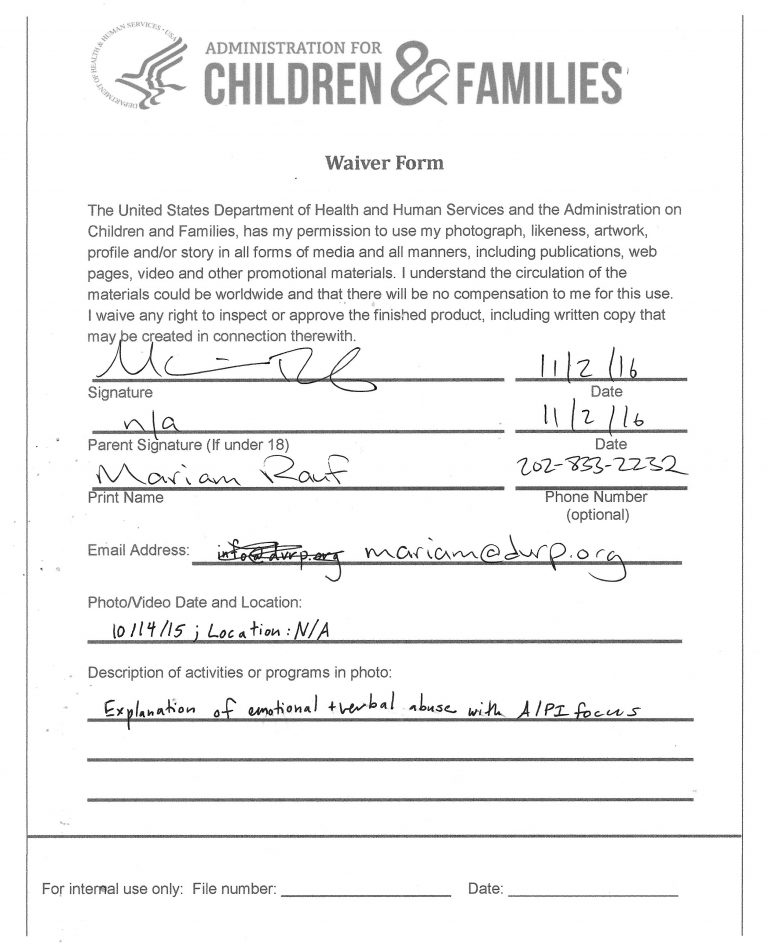 DEPARTMENT OF HEALTH & HUMAN SERVICES • USA
ADMINISTRATION FOR
CHILDREN & FAMILIES
Waiver Form
The United States Department of Health and Human Services and the Administration on
Children and Families, has my permission to use my photograph, likeness, artwork,
profile and/or story in all forms of media and all manners, including publications, web
pages, video and other promotional materials. I understand the circulation of the
materials could be worldwide and that there will be no compensation to me for this use.
I waive any right to inspect or approve the finished product, including written copy that
may be created in connection therewith.
11/2/16
Signature Date
n/a 11/2/16
Parent Signature (If under 18) Date
Mariam Rauf 202-833-2232
Print Name Phone Number
(optional)
Email Address: info@dvrp.org mariam@dvrp.org
Photo/Video Date and Location:
10/14/15 ; Location: N/A
Description of activities or programs in photo:
Explanation of emotional + verbal abuse with A/PI focus
For internal use only: File number: Date: